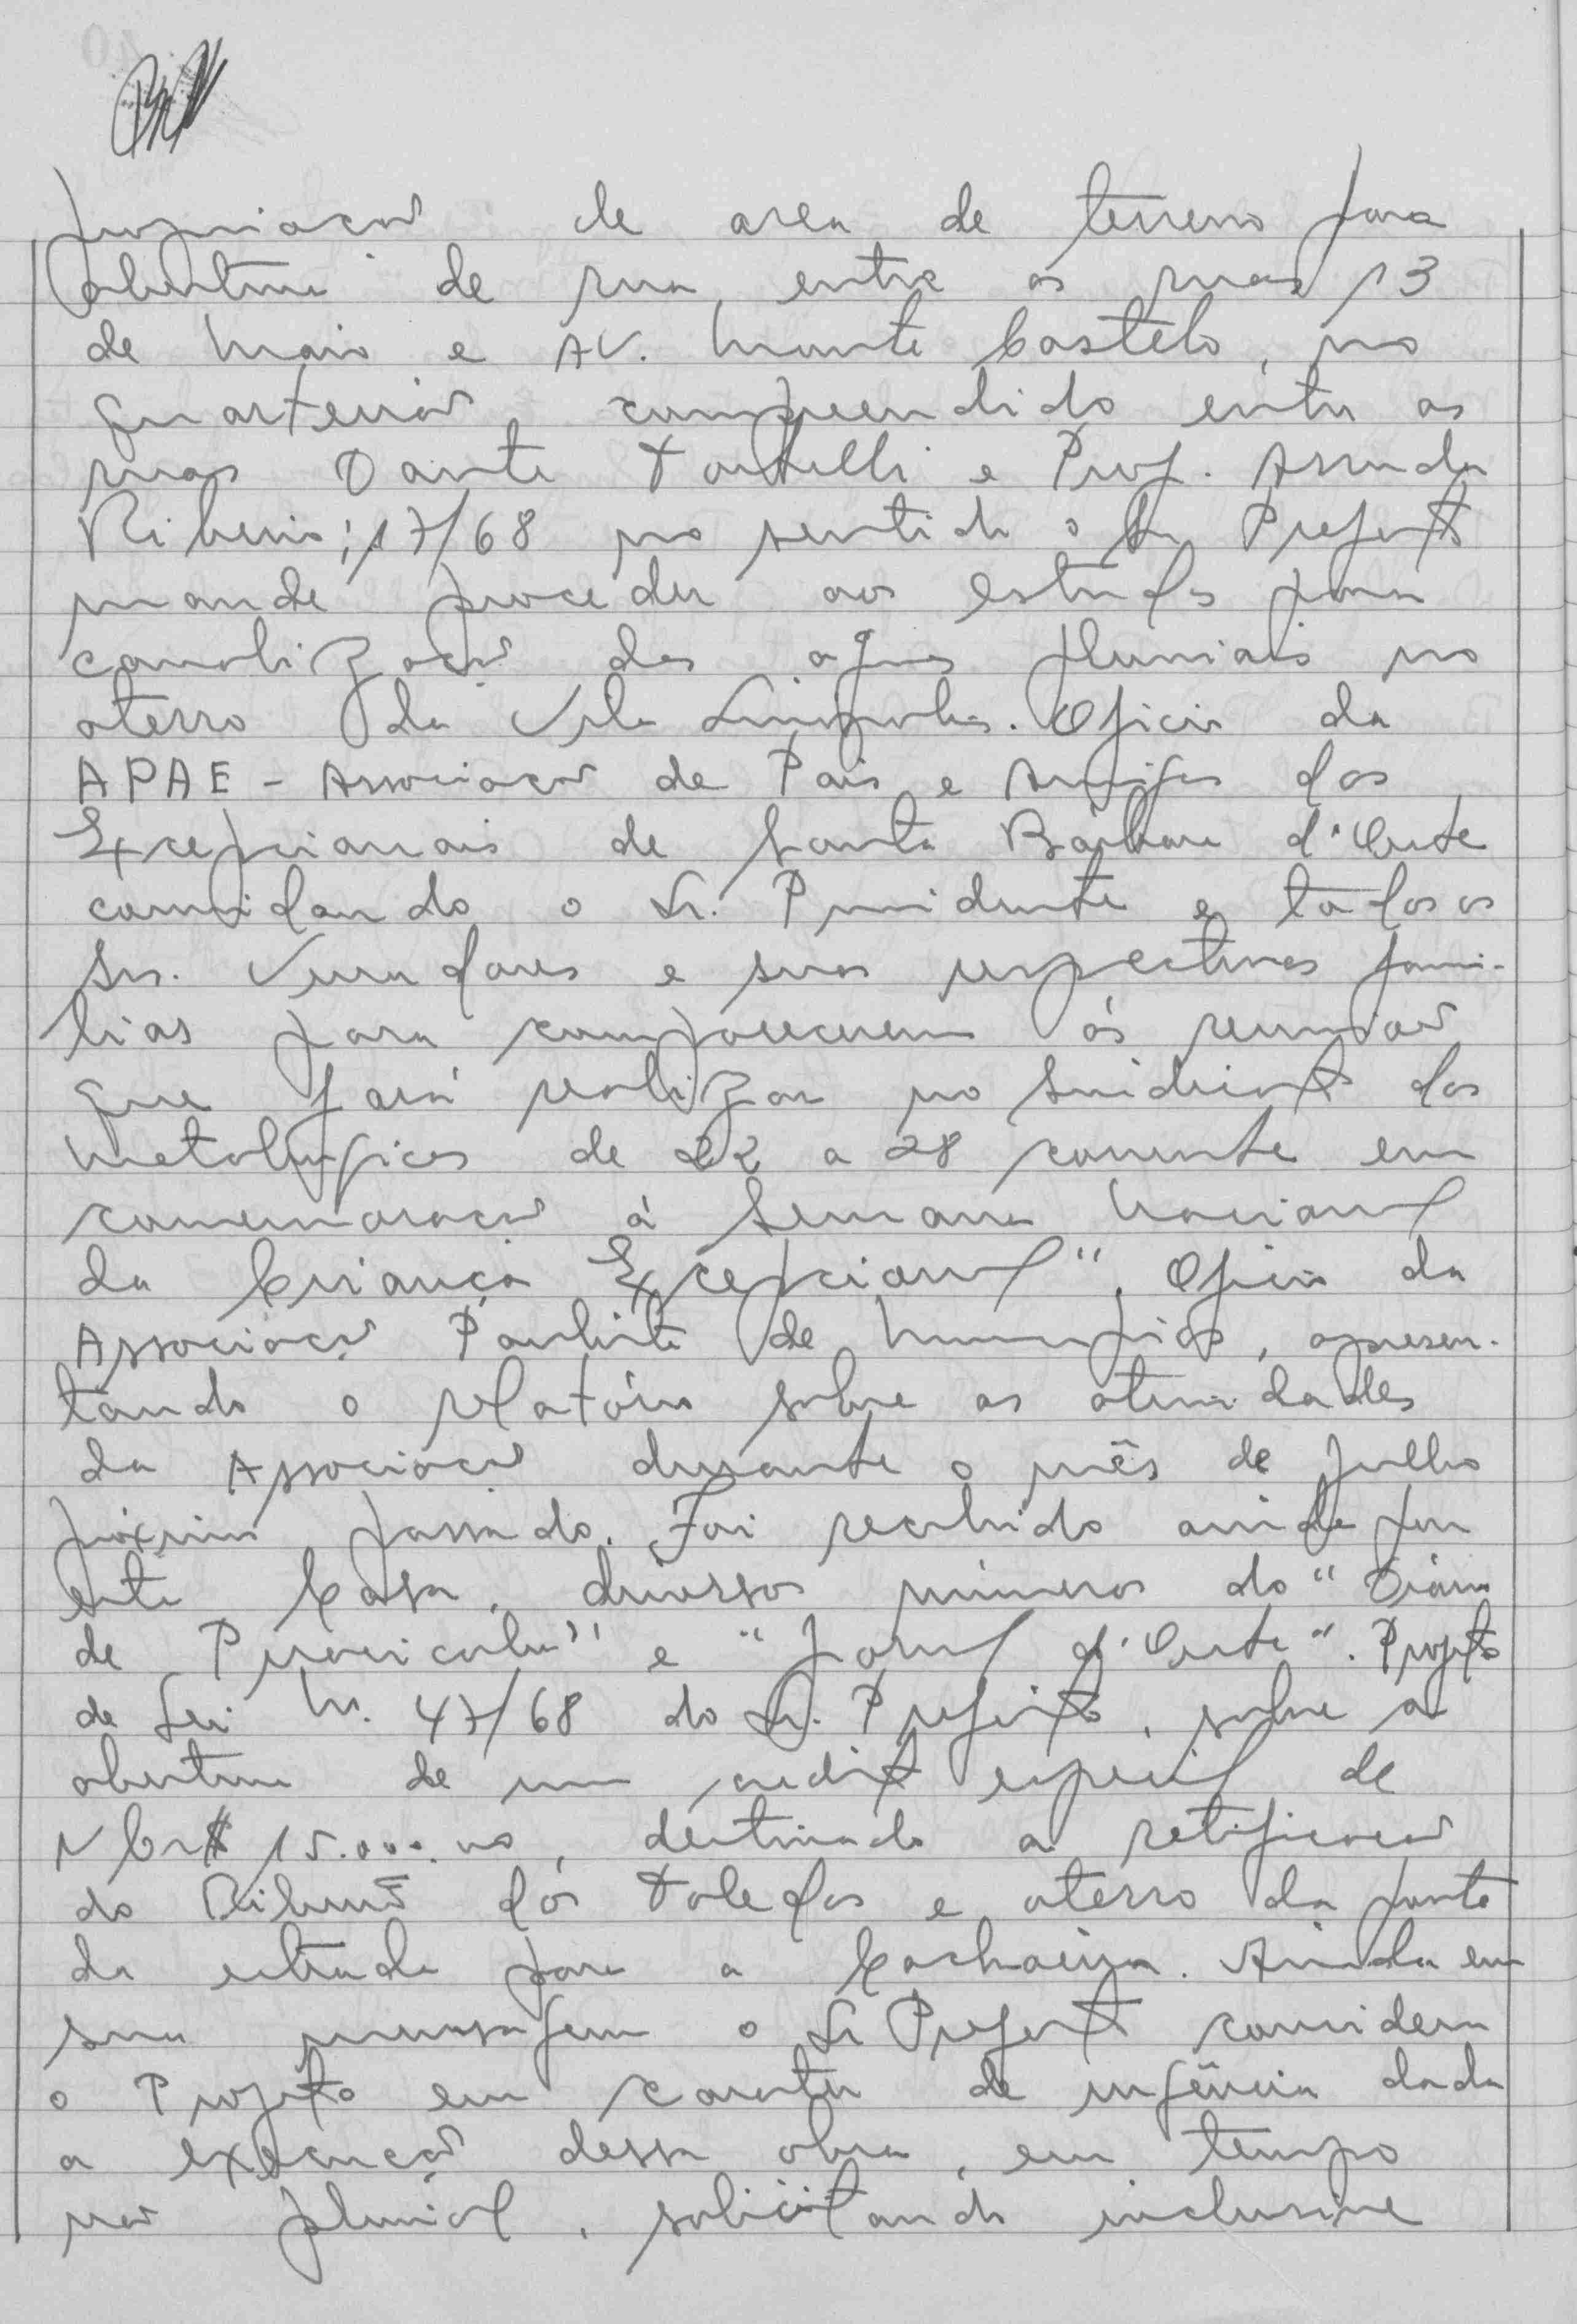 propriação de area de terreno para
abertura de rua, entre as ruas 13
de Maio e AV. Monte Castelo, no
quarteirão compreendido entre as
ruas Dante Tortelli e Prof. Arruda
Ribeiro; 17/68 no sentido o Sr. Prefeito
mande proceder aos estudos para
canalização das aguas pluviais no
aterro da Vila Linopolis. Oficio da
APAE - Associação de Pais e Amigos dos
Excepcionais de Santa Bárbara d'Oeste
convidando o Sr. Presidente e todos os
Srs. Vereadores e suas respectivas fami-
lias para comparecerem ás reunião
que fará realizar no Sindicato dos
Metalurgicos de 22 a 28 corrente em
comemoração á Semana Nacional
da Criança Excepcional". Oficio da
Associação Paulista de Municipios, apresen-
tando o relatório sobre as atividades
da Associação durante o mês de julho
próximo passado. Foi recebido ainda por
esta Casa, diversos números do "Diário
de Piracicaba" e "Jornal d'Oeste". Projeto
de Lei N. 47/68 do Sr. Prefeito, sobre a
abertura de um credito especial de
NCr$ 15.000.00, destinado a retificação
do Ribeirão dos Toledos e aterro da ponte
da estrada para a Cachoeira. Ainda em
sua mensagem o Sr Prefeito considera
o Projeto em carater de urgência dada
a execução dessa obra, em tempo
não pluvial, solicitando inclusive